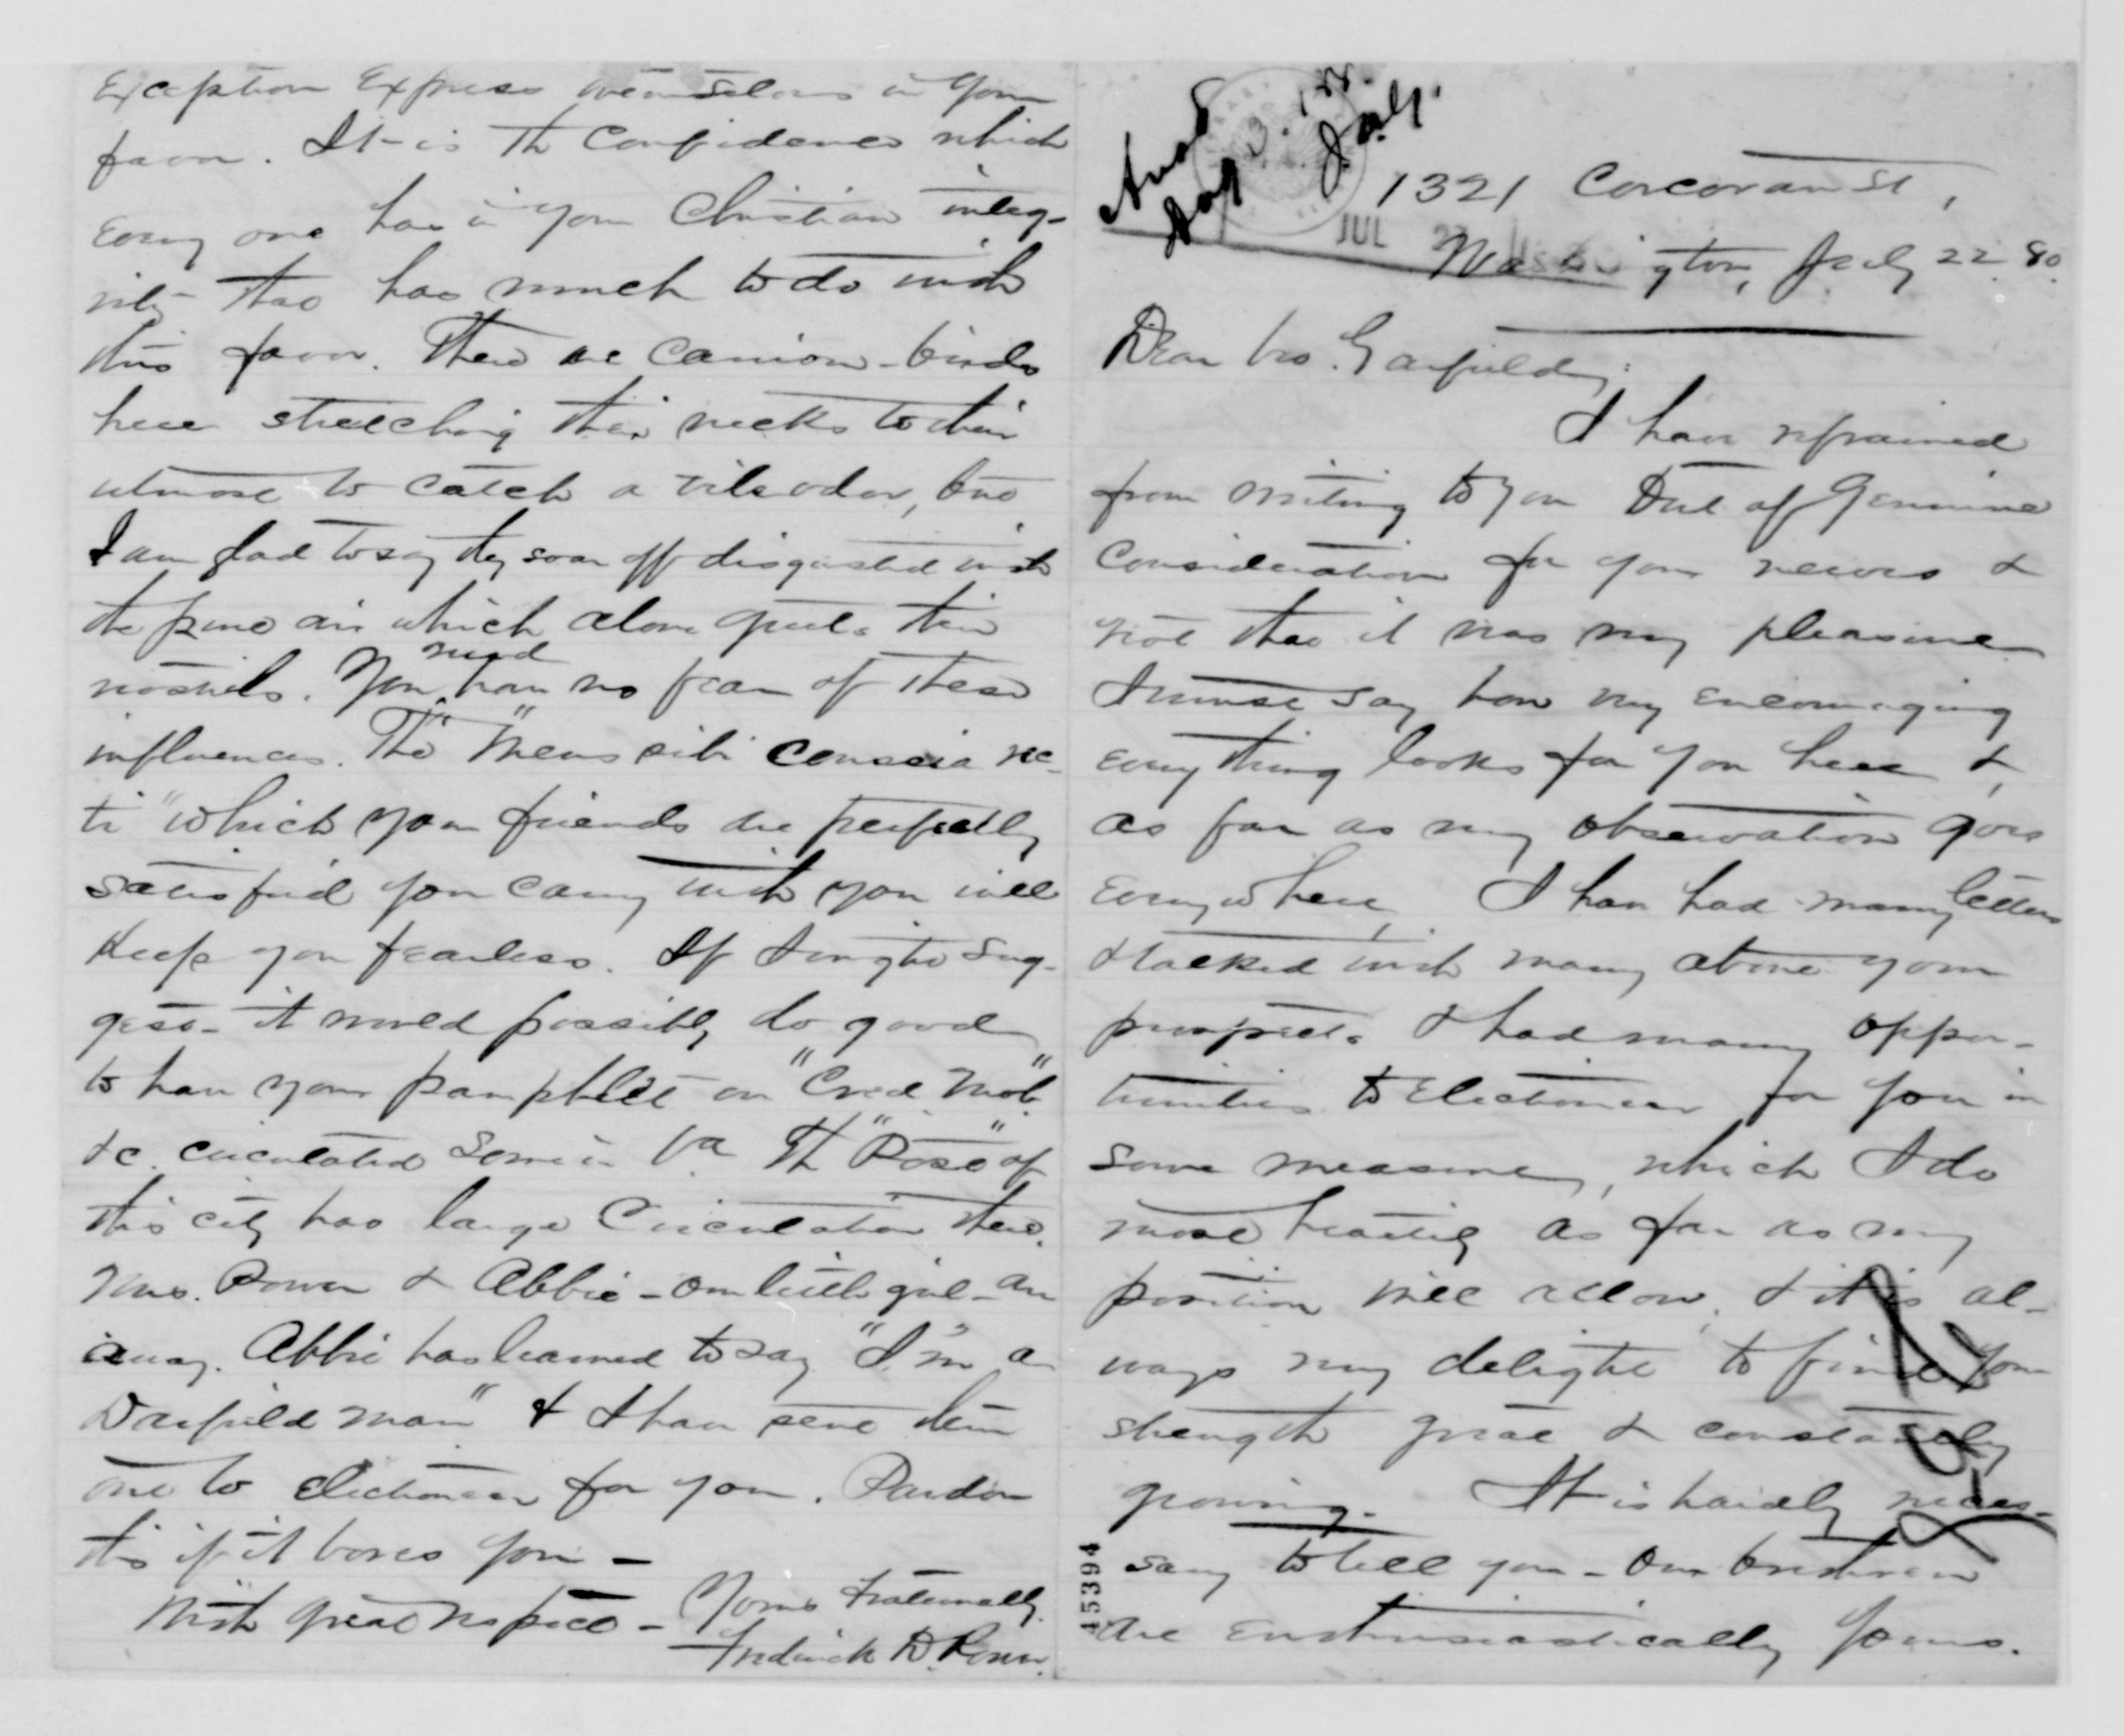 Ansd
Aug 3. '80.
J.a.G.
JUL 27
1321 Corcoran St,
Washington, July 22. 80.
Dear bro. Garfield:
I have refrained
from writing to you out of genuine
consideration for your nerves &
not that it was my pleasure
I must say how very encouraging
everything looks for you here &,
as far as my observation goes
everywhere, I have had many letters
& talked with many about your
prospects & had many oppor-
tunities to electioneer for you in
some measure, which I do
most heartily as far as my
position will allow, & it is al-
ways my delight to find your
strength great & constantly
growing. It is hardly neces-
sary to tell you - our brethren
are enthusiastically yours.
453994
Exception Express themselves in your
favor. It is th confidence which
every one has in your Christian integ-
rity that has much to do with
this favor. There are carrion-birds
here stretching their necks to their
utmost to catch a vile odor, but
I am glad to say they soar off disgusted with
the pure air which alone greets their
nostrils. You need have no fear of these
influences. The "mens sibi conscia rec-
ti" which your friends are perfectly
satisfied you carry with you will
keep you fearless. If I might sug-
gest - it would possibly do good
to have your pamphlet on "Cred. Mob."
&c. circulated some in Va. Th "Post" of
this city has large circulation there.
Mrs. Power & Abbie - our little girl - are
away. Abbie has learned to say "I'm a
Darfield man" & I have sent them
out to electioneer for you. Pardon
this if it bores you -
With great respect - Yours fraternally.
Fredrick D. Power.